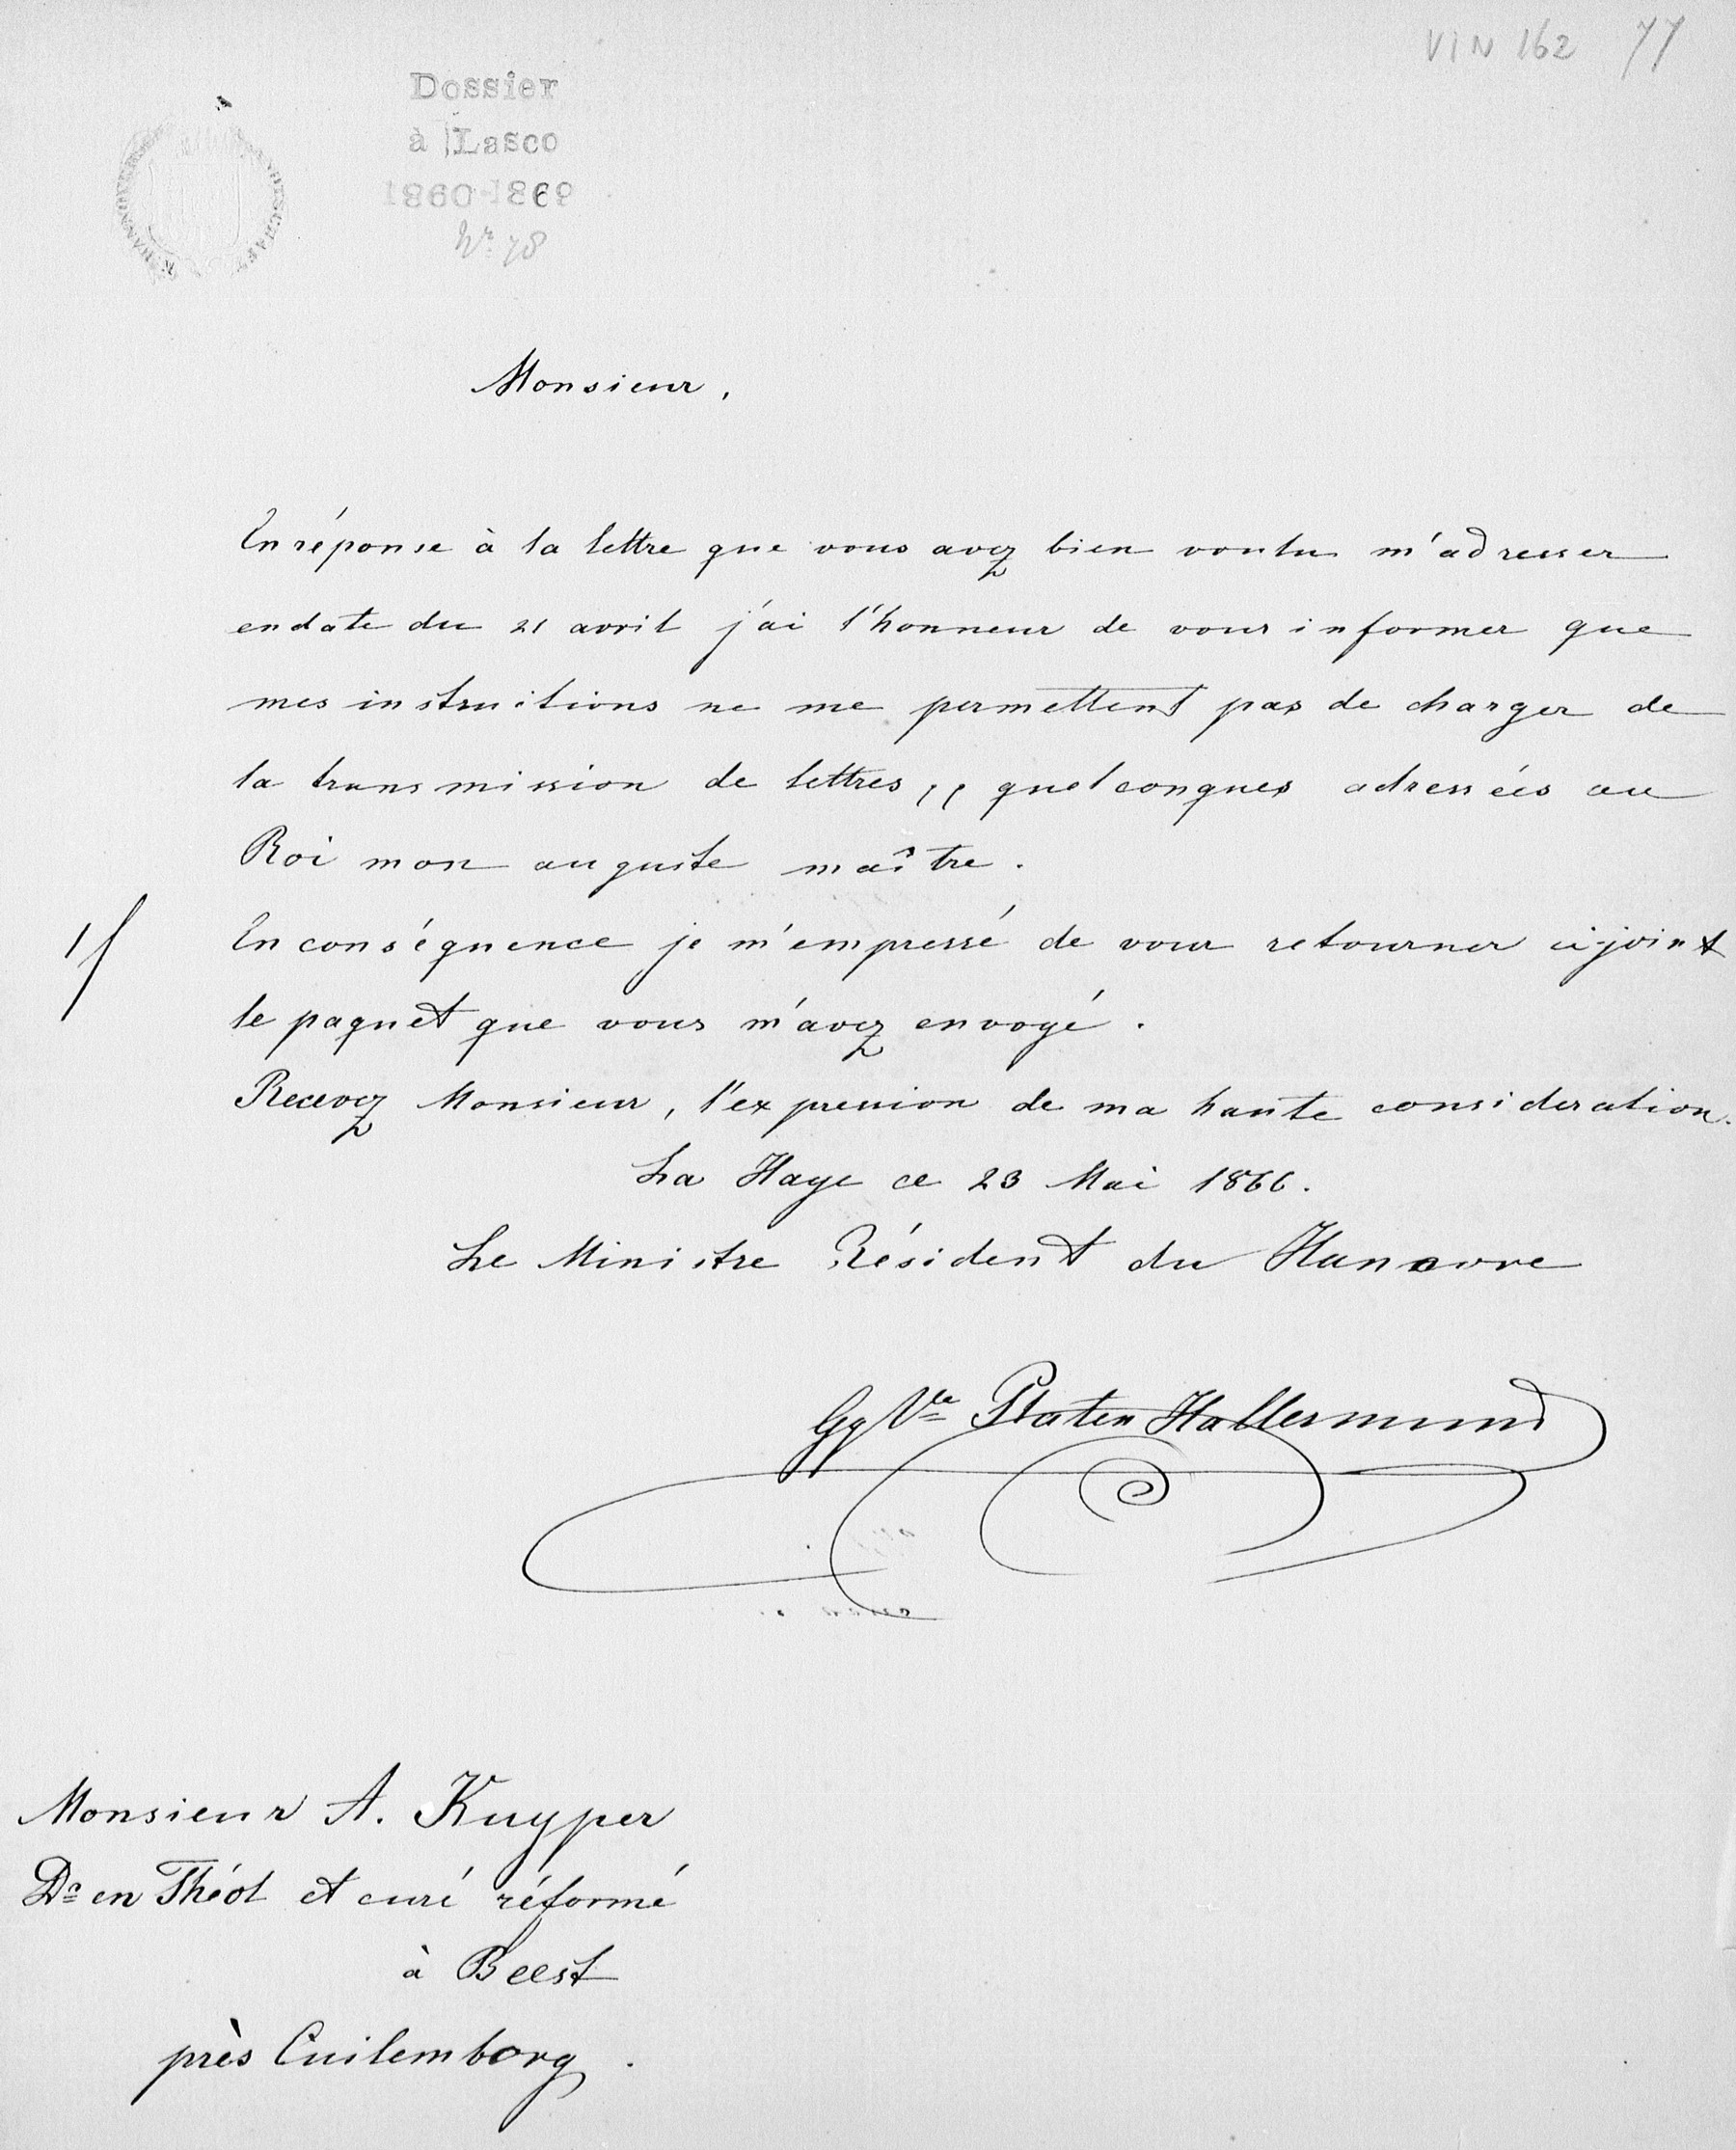 VIN 162 77
Dossier
à Lasco
1860-1869
Nr. 78
Monsieur,
En réponse à la lettre que vous avez bien voulu m'adresser
en date du 21 avril j'ai l'honneur de vous informer que
mes instructions ne me permettent pas de charger de
la transmission de lettres,, quelconques adressées au
Roi mon auguste maître.
1/
En conséquence je m'empressé de vour retourner ci-joint
le paquet que vous m'avez envoyé.
Recevez Monsieur, l'expression de ma haute consideration.
La Haye ce 23 Mai 1866.
Le Ministre Résident du Hanovre
Platen Hallermund
Monsieur A. Kuyper
Dr en Théol et curé réformé
à Beest
près Cuilemborg.